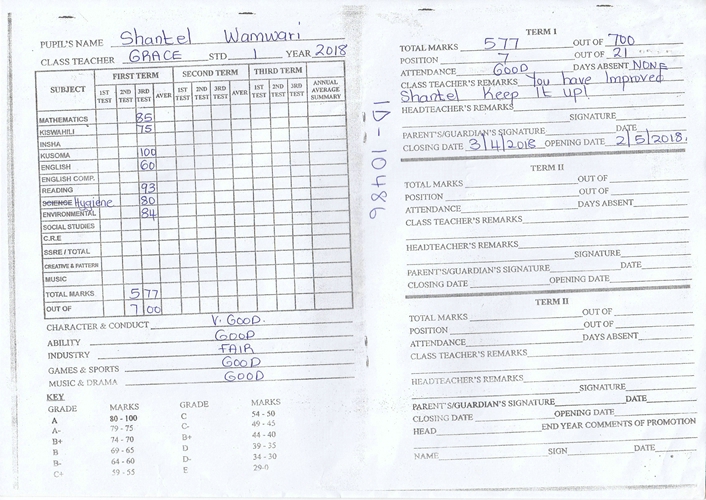 PUPIL'S NAME Shantel Wamwari
CLASS TEACHER GRACE STD. 1 YEAR 2018
SUBJECT FIRST TERM SECOND TERM THIRD TERM ANNUAL AVERAGE SUMMARY
1ST TEST 2ND TEST 3RD TEST AVER 1ST TEST 2ND TEST 3RD TEST AVER 1ST TEST 2ND TEST 3RD TEST
MATHEMATICS 85
KISWAHILI 75
INSHA
KUSOMA 100
ENGLISH 60
ENGLISH COMP.
READING 93
SCIENCE Hygiene 80
ENVIRONMENTAL 84
SOCIAL STUDIES
C.R.E
SSRE / TOTAL
CREATIVE & PATTERN
MUSIC
TOTAL MARKS 577
OUT OF 700
CHARACTER & CONDUCT V. GOOD.
ABILITY GOOD
INDUSTRY FAIR
GAMES & SPORTS GOOD
MUSIC & DRAMA GOOD
KEY
GRADE MARKS GRADE MARKS
A 80 - 100 C 54 - 50
A- 79 - 75 C- 49 - 45
B+ 74 - 70 B+ 44 - 40
B 69 - 65 D 39 - 35
B- 64 - 60 D- 34 - 30
C+ 59 - 55 E 29-0
ID - 10486
TERM I
TOTAL MARKS 577 OUT OF 700
POSITION 7 OUT OF 21
ATTENDANCE GOOD DAYS ABSENT NONE
CLASS TEACHER'S REMARKS You have Improved
Shantel Keep It up!
HEADTEACHER'S REMARKS
SIGNATURE
PARENT'S/GUARDIAN'S SIGNATURE DATE
CLOSING DATE 3/4/2018 OPENING DATE 2/5/2018.
TERM II
TOTAL MARKS OUT OF
POSITION OUT OF
ATTENDANCE DAYS ABSENT
CLASS TEACHER'S REMARKS
HEADTEACHER'S REMARKS
SIGNATURE
PARENT'S/GUARDIAN'S SIGNATURE DATE
CLOSING DATE OPENING DATE
TERM II
TOTAL MARKS OUT OF
POSITION OUT OF
ATTENDANCE DAYS ABSENT
CLASS TEACHER'S REMARKS
HEADTEACHER'S REMARKS
SIGNATURE
PARENT'S/GUARDIAN'S SIGNATURE DATE
CLOSING DATE OPENING DATE
HEAD END YEAR COMMENTS OF PROMOTION
NAME SIGN DATE